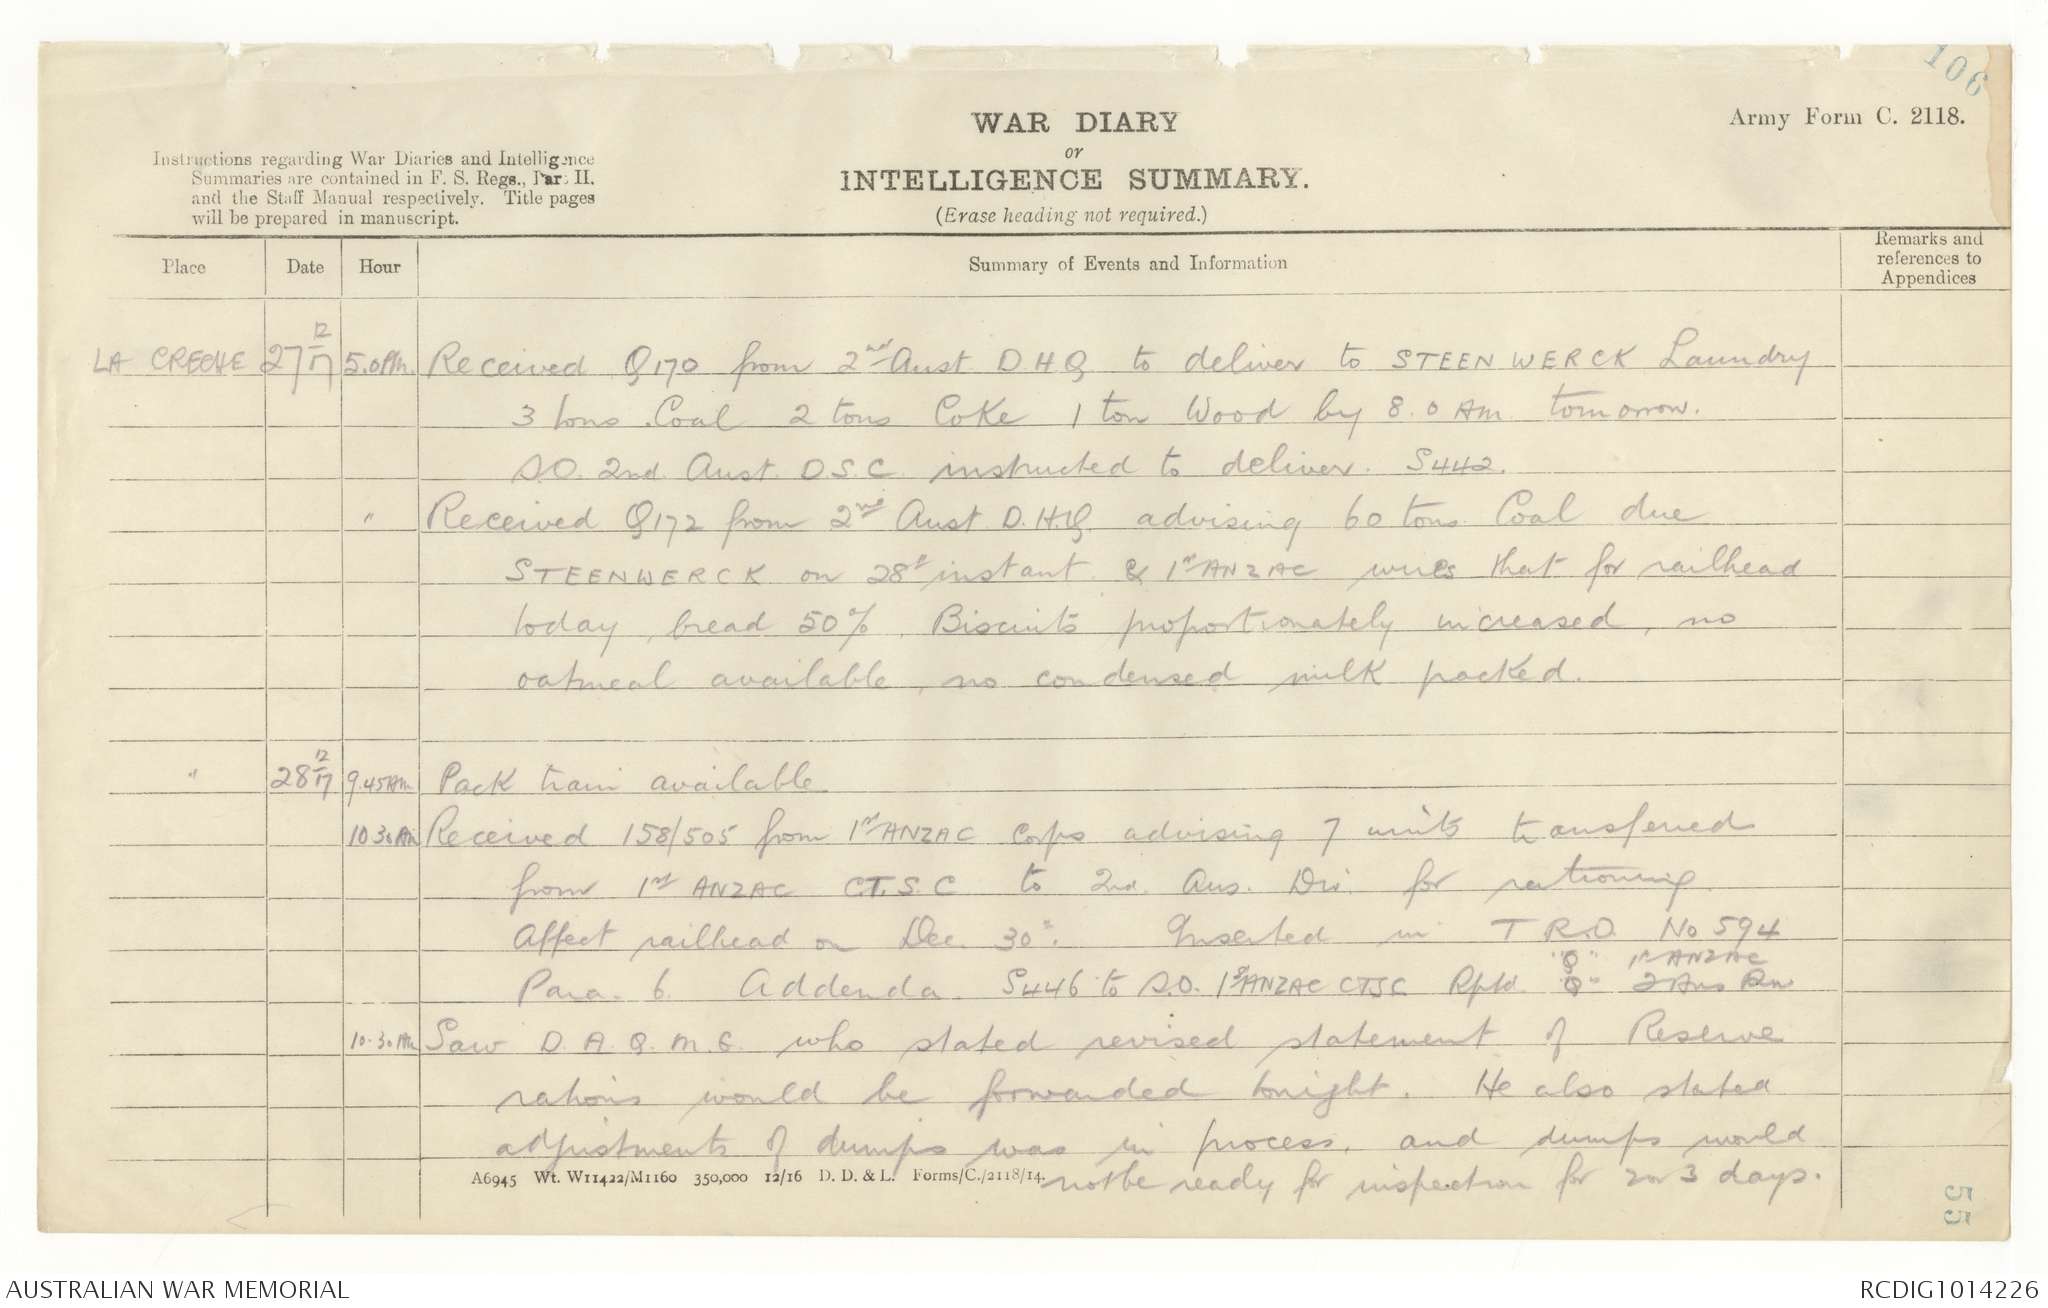 106
Army Form C. 2118.
WAR DIARY
or
INTELLIGENCE SUMMARY.
(Erase heading not required.)
Instructions regarding War Diaries and Intelligence
Summaries are contained in F. S. Regs., Part II.
and the Staff Manual respectively. Title pages
will be prepared in manuscript.
Place Date Hour Summary of Events and Information Remarks and references to Appendices
LA CRECHE 27 12/17 5.0 PM. Received Q170 from 2nd Aust D.H.Q to deliver to STEENWERCK Laundry
3 tons Coal 2 tons Coke 1 ton Wood by 8.0 AM tomorrow.
S.O. 2nd Aust. D.S.C. instructed to deliver. S442.
" Received Q172 from 2nd Aust D.H.Q. advising 60 tons Coal due
STEENWERCK on 28th instant & 1st ANZAC wires that for railhead
today, bread 50%, Biscuits proportionately increased, no
oatmeal available, no condensed milk packed.
" 28 12/17 9.45 AM Pack train available.
10 30 AM Received 158/505 from 1st ANZAC Corps advising 7 units transferred
from 1st ANZAC C.T.S.C to 2nd. Aus. Div. for rationing.
Affect railhead on Dec. 30th. Inserted in T R.O. No 594
Para. 6 Addenda. S446 to S.O. 1st ANZAC CTSC Rptd. "Q" 1st ANZAC
"Q" 2 Aus Dn
10.30 AM Saw D. A. Q. M. G. who stated revised statement of Reserve
rations would be forwarded tonight. He also stated
adjustments of dumps was in process, and dumps would
not be ready for inspection for 2 or 3 days.
A6945 Wt. W11422/M1160 350,000 12/16 D. D. & L. Forms/C./2118/14.
55
AUSTRALIAN WAR MEMORIAL
RCDIG1014226